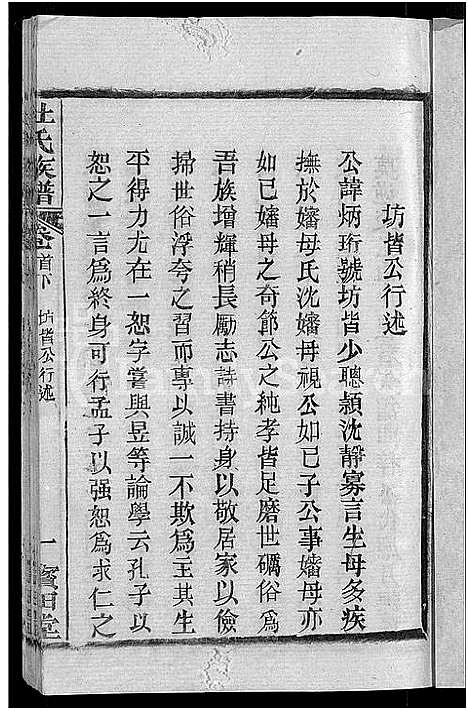 坊皆公行述
公諱炳珩號坊皆少聰頴沈靜寡言生母多疾
撫於嬸母氏沈嬸母視公如已子公事嬸母亦
如已嬸母之奇節公之純孝皆足磨世礪俗爲
吾族增輝稍長勵志詩書持身以敬居家以儉
掃世俗浮夸之習而專以誠一不欺爲主其生
平得力尤在一恕字嘗與昱等論學云孔子以
恕之一言爲終身可行孟子以强恕爲求仁之
杜氏族譜 卷首下 坊皆公行述 一 寶田堂